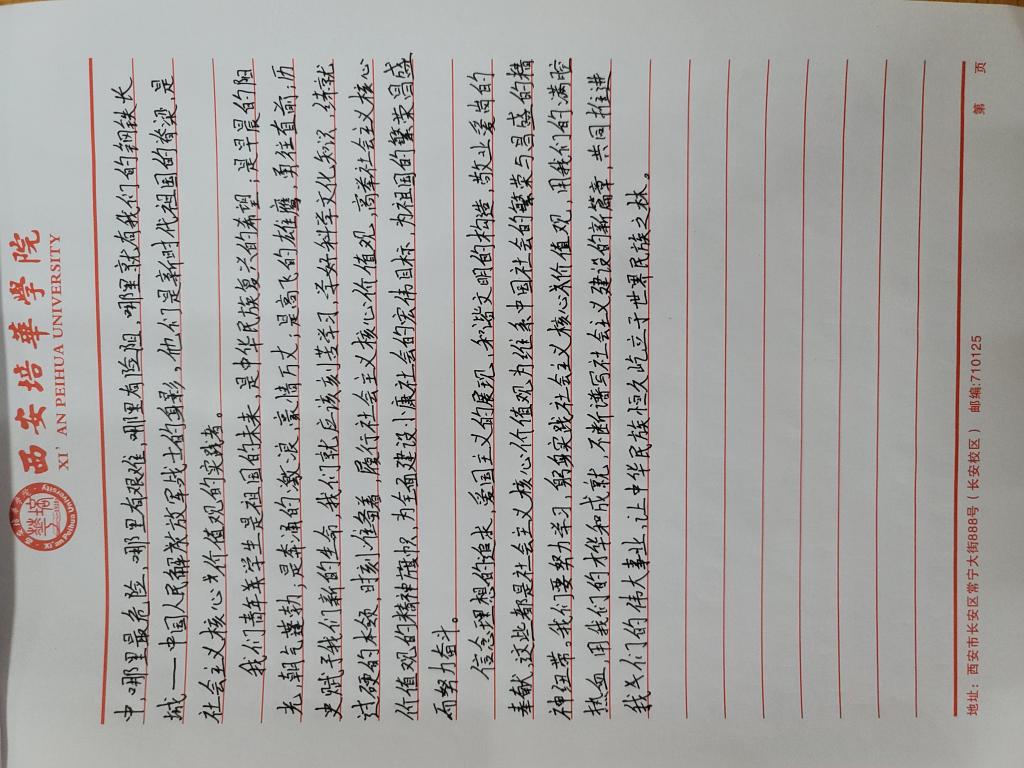 西安培華學院
XI'AN PEIHUA UNIVERSITY
中，哪里最危险，哪里有艰难，哪里有险阻，哪里就有我们的钢铁长
城——中国人民解放军战士的身影，他们是新时代祖国的脊梁，是
社会主义核心价值观的实践者。
我们青年学生是祖国的未来，是中华民族复兴的希望；是早晨的阳
光，朝气蓬勃；是奔涌的激浪，豪情万丈；是高飞的雄鹰，勇往直前；历
史赋予我们新的生命，我们就应该刻苦学习，学好科学文化知识，练就
过硬的本领，时刻准备着，履行社会主义核心价值观，高举社会主义核心
价值观的精神旗帜，为全面建设小康社会的宏伟目标，为祖国的繁荣昌盛
而努力奋斗。
信念理想的追求，爱国主义的展现，和谐文明的构造，敬业爱岗的
奉献，这些都是社会主义核心价值观为维系中国社会的繁荣与昌盛的精
神纽带。我们要努力学习，躬身实践社会主义核心价值观，用我们的满腔
热血，用我们的才华和成就，不断谱写社会主义建设的新篇章，共同推进
我们的伟大事业，让中华民族恒久屹立于世界民族之林。
第 页
地址：西安市长安区常宁大街888号（长安校区） 邮编:710125